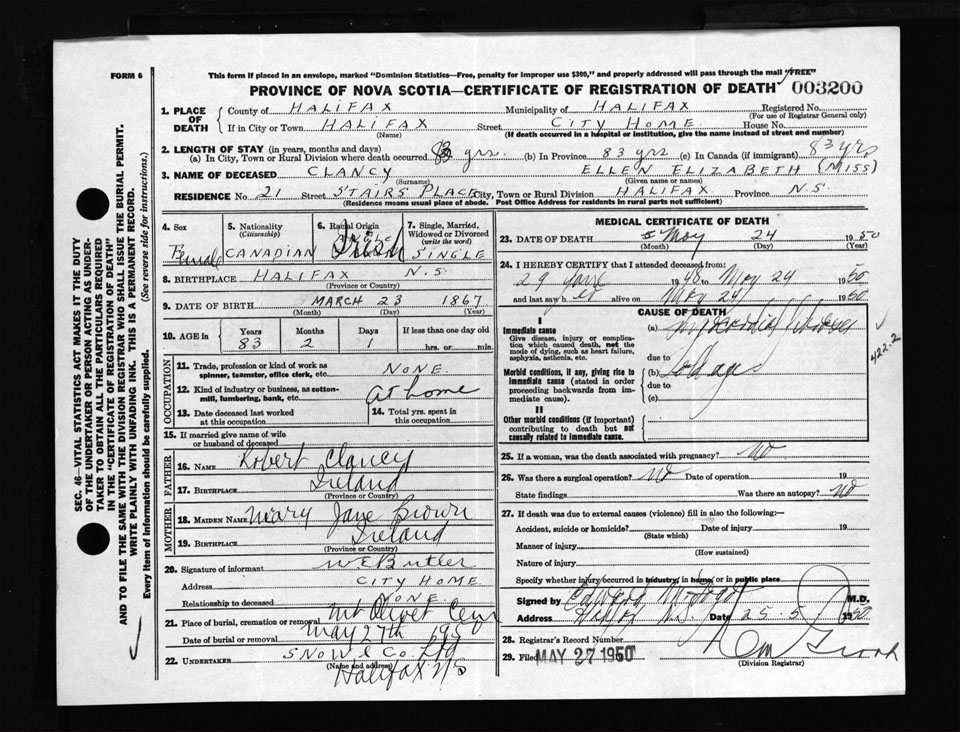 FORM 6
This form if placed in an envelope, marked "Dominion Statistics—Free, penalty for improper use $300," and properly addressed will pass through the mail "FREE"
PROVINCE OF NOVA SCOTIA—CERTIFICATE OF REGISTRATION OF DEATH 003200
1. PLACE OF DEATH
County of HALIFAX Municipality of HALIFAX Registered No.
(For use of Registrar General only)
If in City or Town HALIFAX Street CITY HOME House No.
(Name) (If death occurred in a hospital or institution, give the name instead of street and number)
2. LENGTH OF STAY (in years, months and days)
(a) In City, Town or Rural Division where death occurred 83 yrs. (b) In Province 83 yrs (c) In Canada (if immigrant) 83 yrs
3. NAME OF DECEASED CLANCY ELLEN ELIZABETH (MISS)
(Surname) (Given name or names)
RESIDENCE No. 21 Street STAIRS PLACE City, Town or Rural Division HALIFAX Province N.S.
(Residence means usual place of abode. Post Office Address for residents in rural parts not sufficient)
4. Sex Female
5. Nationality (Citizenship) CANADIAN
6. Racial Origin Irish
7. Single, Married, Widowed or Divorced (write the word) SINGLE
8. BIRTHPLACE HALIFAX N.S.
(Province or Country)
9. DATE OF BIRTH MARCH 23 1867
(Month) (Day) (Year)
10. AGE in Years Months Days If less than one day old
83 2 1 hrs. or min.
OCCUPATION
11. Trade, profession or kind of work as spinner, teamster, office clerk, etc. NONE
12. Kind of industry or business, as cotton-mill, lumbering, bank, etc. at home
13. Date deceased last worked at this occupation
14. Total yrs. spent in this occupation
15. If married give name of wife or husband of deceased
FATHER
16. NAME Robert Clancy
17. BIRTHPLACE Ireland
(Province or Country)
MOTHER
18. MAIDEN NAME Mary Jane Brown
19. BIRTHPLACE Ireland
(Province or Country)
20. Signature of informant W E Butler
Address CITY HOME
Relationship to deceased NONE
21. Place of burial, cremation or removal Mt Olivet Cem
Date of burial or removal May 27th 19
22. UNDERTAKER SNOW & Co. Ltd
(Name and address)
Halifax N/S
MEDICAL CERTIFICATE OF DEATH
23. DATE OF DEATH May 24 1950
(Month) (Day) (Year)
24. I HEREBY CERTIFY that I attended deceased from:
29 1948 to May 24 1950
and last saw her alive on May 24 1950
CAUSE OF DEATH
I
Immediate cause
Give disease, injury or complication which caused death, not the mode of dying, such as heart failure, asphyxia, asthenia, etc.
(a)
due to
Morbid conditions, if any, giving rise to immediate cause (stated in order proceeding backwards from immediate cause).
(b)
due to
(c)
422.2
II
Other morbid conditions (if important) contributing to death but not causally related to immediate cause.
25. If a woman, was the death associated with pregnancy? No
26. Was there a surgical operation? No Date of operation 19
State findings Was there an autopsy? No
27. If death was due to external causes (violence) fill in also the following:—
Accident, suicide or homicide? Date of injury 19
(State which)
Manner of injury
(How sustained)
Nature of injury
Specify whether injury occurred in industry, in home, or in public place
Signed by Edward M.D.
Address Halifax N.S. Date 25.5 1950
28. Registrar's Record Number
29. Filed MAY 27 1950
(Division Registrar)
SEC. 46—VITAL STATISTICS ACT MAKES IT THE DUTY
OF THE UNDERTAKER OR PERSON ACTING AS UNDER-
TAKER TO OBTAIN ALL THE PARTICULARS REQUIRED
IN THE "CERTIFICATE OF REGISTRATION OF DEATH"
AND TO FILE THE SAME WITH THE DIVISION REGISTRAR WHO SHALL ISSUE THE BURIAL PERMIT.
WRITE PLAINLY WITH UNFADING INK. THIS IS A PERMANENT RECORD.
Every item of information should be carefully supplied. (See reverse side for instructions.)